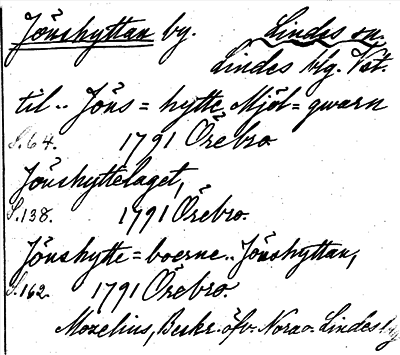 Jönshyttan by. Lindes sn.
Lindes blg. Vstm.
til .. Jöns = hytte Mjöl = qwarn
S. 64. 1791 Örebro
Jönshyttelaget,
S. 138. 1791 Örebro.
Jönshytte = boerne .. Jönshyttan,
S. 162. 1791 Örebro.
Mozelius, Beskr. öfv. Nora o. Lindes